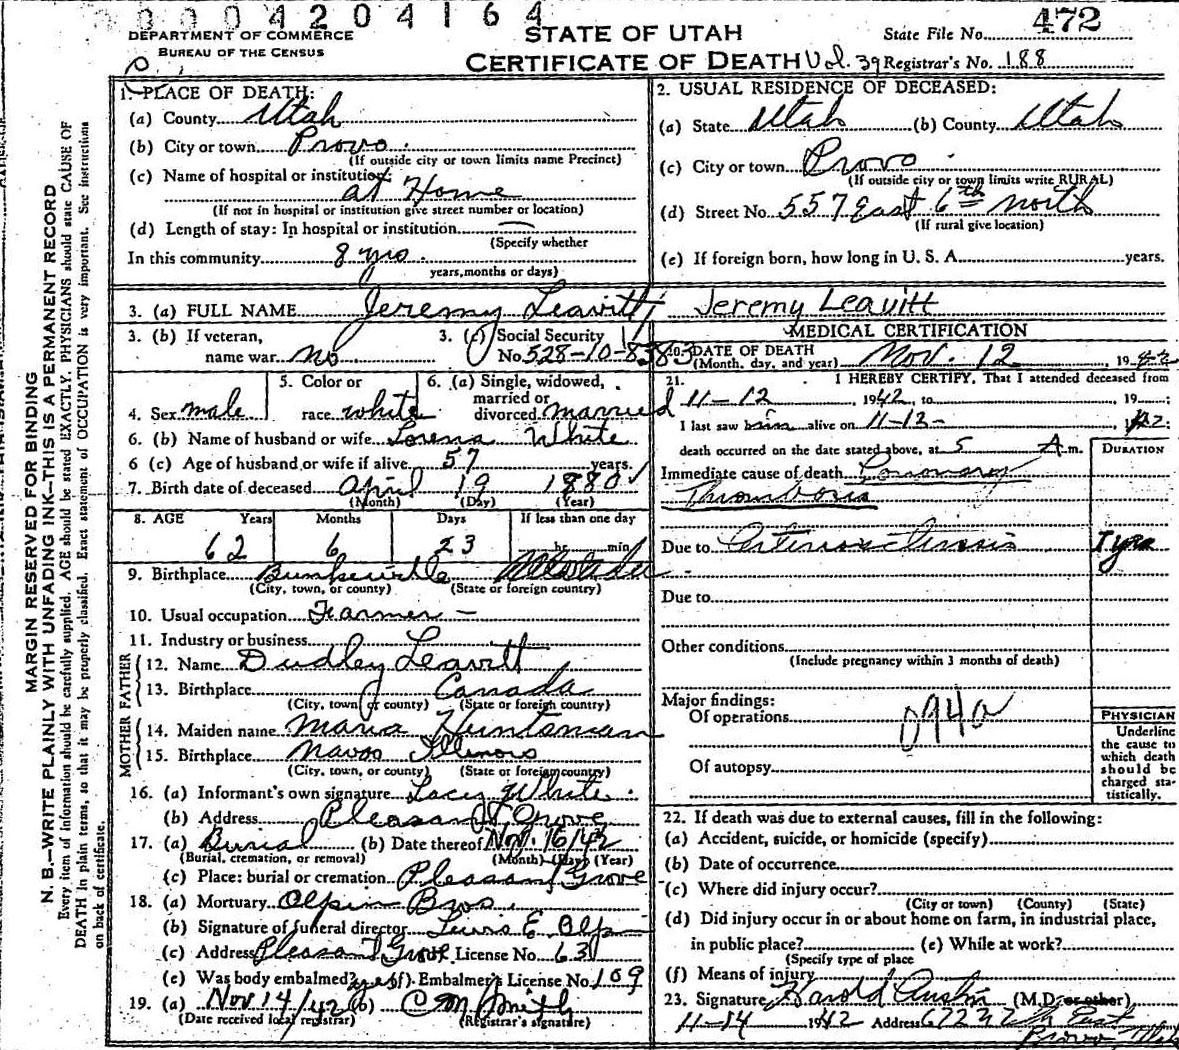 0 0 0 0 4 2 0 4 1 6 4
472
DEPARTMENT OF COMMERCE
BUREAU OF THE CENSUS
STATE OF UTAH
CERTIFICATE OF DEATH
State File No.
Vol. 39 Registrar's No. 188
MARGIN RESERVED FOR BINDING
N. B.—WRITE PLAINLY WITH UNFADING INK—THIS IS A PERMANENT RECORD
Every item of information should be carefully supplied. AGE should be stated EXACTLY. PHYSICIANS should state CAUSE OF
DEATH in plain terms, so that it may be properly classified. Exact statement of OCCUPATION is very important. See instructions
on back of certificate.
1. PLACE OF DEATH:
(a) County Utah
(b) City or town Provo
(If outside city or town limits name Precinct)
(c) Name of hospital or institution:
at Home
(If not in hospital or institution give street number or location)
(d) Length of stay: In hospital or institution —
(Specify whether
In this community 8 yrs.
years, months or days)
2. USUAL RESIDENCE OF DECEASED:
(a) State Utah (b) County Utah
(c) City or town Provo
(If outside city or town limits write RURAL)
(d) Street No. 557 East 6th north
(If rural give location)
(e) If foreign born, how long in U. S. A. years.
3. (a) FULL NAME Jeremy Leavitt Jeremy Leavitt
3. (b) If veteran,
name war no
3. (c) Social Security
No. 528-10-8383
4. Sex male
5. Color or
race white
6. (a) Single, widowed,
married or
divorced married
6. (b) Name of husband or wife Lorena White
6 (c) Age of husband or wife if alive 57 years.
7. Birth date of deceased April 19 1880
(Month) (Day) (Year)
8. AGE Years Months Days If less than one day
62 6 23 hr. min.
9. Birthplace Bunkerville Nevada
(City, town, or county) (State or foreign country)
10. Usual occupation Farmer —
11. Industry or business
FATHER
12. Name Dudley Leavitt
13. Birthplace Canada
(City, town or county) (State or foreign country)
MOTHER
14. Maiden name Maria Huntsman
15. Birthplace Navoo Illinois
(City, town, or county) (State or foreign country)
16. (a) Informant's own signature White
(b) Address Pleasant Grove
17. (a) Burial (b) Date thereof Nov. 16/42
(Burial, cremation, or removal) (Month) (Day) (Year)
(c) Place: burial or cremation Pleasant Grove
18. (a) Mortuary Olpin Bros.
(b) Signature of funeral director E. Olpin
(c) Address Pleasant Grove License No. 63
(e) Was body embalmed? yes (f) Embalmer's License No. 109
19. (a) Nov 14/42 (b) C M Smith
(Date received local registrar) (Registrar's signature)
MEDICAL CERTIFICATION
20. DATE OF DEATH
(Month, day, and year) Nov. 12, 1942
21. I HEREBY CERTIFY, That I attended deceased from
11-12, 1942, to , 19 ;
I last saw him alive on 11-12-, 1942;
death occurred on the date stated above, at 5 A. m.
DURATION
Immediate cause of death Coronary
Thrombosis
Due to Arteriosclerosis yrs
Due to
Other conditions
(Include pregnancy within 3 months of death)
Major findings:
Of operations 094a
Of autopsy
PHYSICIAN
Underline
the cause to
which death
should be
charged sta-
tistically.
22. If death was due to external causes, fill in the following:
(a) Accident, suicide, or homicide (specify)
(b) Date of occurrence
(c) Where did injury occur?
(City or town) (County) (State)
(d) Did injury occur in or about home on farm, in industrial place,
in public place? (e) While at work?
(Specify type of place
(f) Means of injury
23. Signature Harold Austin (M.D. or other)
11-14 1942 Address East
Provo, Utah